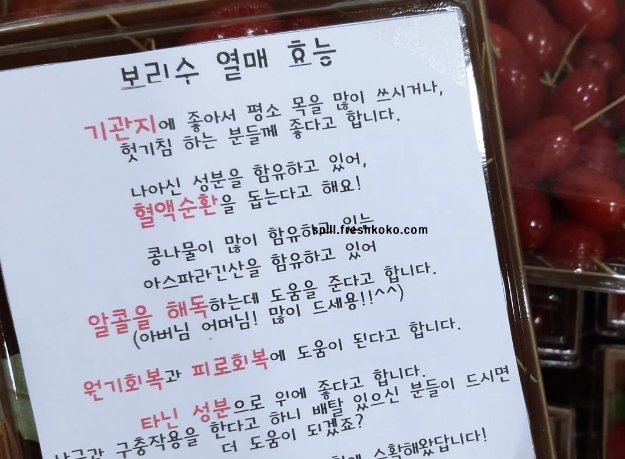 보리수 열매 효능
기관지에 좋아서 평소 목을 많이 쓰시거나,
헛기침 하는 분들께 좋다고 합니다.
나아신 성분을 함유하고 있어,
혈액순환을 돕는다고 해요!
콩나물이 많이 함유하고 있는
spill.freshkoko.com
아스파라긴산을 함유하고 있어
알콜을 해독하는데 도움을 준다고 합니다.
(아버님 어머님! 많이 드세용!!^^)
원기회복과 피로회복에 도움이 된다고 합니다.
타닌 성분으로 위에 좋다고 합니다.
구충작용을 한다고 하니 배탈 있으신 분들이 드시면
더 도움이 되겠죠?
수확해왔답니다!